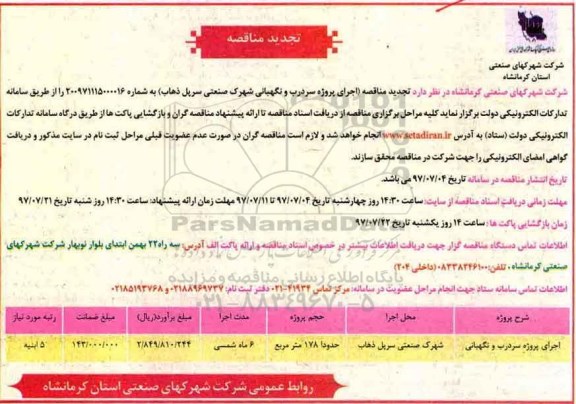 تجدید مناقصه
شرکت شهرکهای صنعتی
استان کرمانشاه
شرکت شهرکهای صنعتی کرمانشاه در نظر دارد تجدید مناقصه (اجرای پروژه سردرب و نگهبانی شهرک صنعتی سرپل ذهاب) به شماره ۲۰۰۹۷۱۱۱۵۰۰۰۰۱۶ را از طریق سامانه
تدارکات الکترونیکی دولت برگزار نماید کلیه مراحل برگزاری مناقصه از دریافت اسناد مناقصه تا ارائه پیشنهاد مناقصه گران و بازگشایی پاکت ها از طریق درگاه سامانه تدارکات
الکترونیکی دولت (ستاد) به آدرس www.setadiran.ir انجام خواهد شد و لازم است مناقصه گران در صورت عدم عضویت قبلی مراحل ثبت نام در سایت مذکور و دریافت
گواهی امضای الکترونیکی را جهت شرکت در مناقصه محقق سازند.
تاریخ انتشار مناقصه در سامانه تاریخ ۹۷/۰۷/۰۴ می باشد.
مهلت زمانی دریافت اسناد مناقصه از سایت: ساعت ۱۴:۳۰ روز چهارشنبه تاریخ ۹۷/۰۷/۰۴ تا ۹۷/۰۷/۱۱ مهلت زمان ارائه پیشنهاد: ساعت ۱۴:۳۰ روز شنبه تاریخ ۹۷/۰۷/۲۱
زمان بازگشایی پاکت ها: ساعت ۱۴ روز یکشنبه تاریخ ۹۷/۰۷/۲۲
اطلاعات تماس دستگاه مناقصه گزار جهت دریافت اطلاعات بیشتر در خصوص اسناد مناقصه و ارائه پاکت الف آدرس: سه راه ۲۲ بهمن ابتدای بلوار نوبهار شرکت شهرکهای
صنعتی کرمانشاه - تلفن: ۰۸۳۳۸۲۴۶۱۰۰ (داخلی ۲۰۴)
اطلاعات تماس سامانه ستاد جهت انجام مراحل عضویت در سامانه: مرکز تماس ۴۱۹۳۴-۰۲۱ دفتر ثبت نام: ۰۲۱۸۸۹۶۹۷۳۷ و ۰۲۱۸۵۱۹۳۷۶۸
شرح پروژه محل اجرا حجم پروژه مدت اجرا مبلغ برآورد(ریال) مبلغ ضمانت رتبه مورد نیاز
اجرای پروژه سردرب و نگهبانی شهرک صنعتی سرپل ذهاب حدودا ۱۷۸ متر مربع ۶ ماه شمسی ۲/۸۴۹/۸۱۰/۲۴۴ ۱۴۳/۰۰۰/۰۰۰ ۵ ابنیه
روابط عمومی شرکت شهرکهای صنعتی استان کرمانشاه
ParsNamadData
پایگاه اطلاع رسانی مناقصه و مزایده
۰۲۱-۸۸۳۴۹۶۷۰-۵